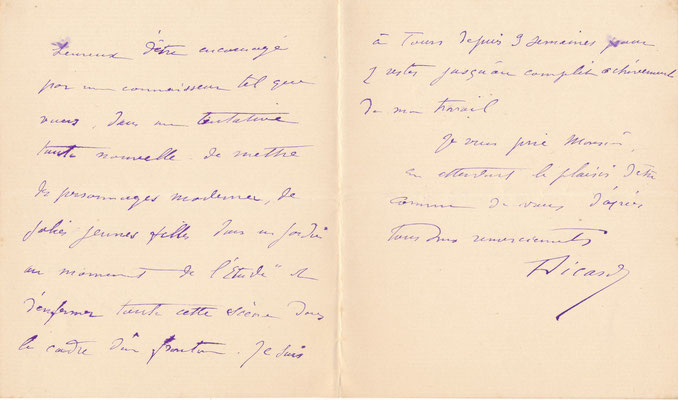 heureux d'être encouragé
par un connaisseur tel que
vous, dans ma tentative
toute nouvelle de mettre
des personnages modernes, de
jolies jeunes filles dans un jardin
au moment de l'Etude" et
d'enfermer toute cette scène dans
le cadre d'un fronton. Je suis
à Tours depuis 3 semaines pour
y rester jusqu'au complet achèvement
de mon travail
Je vous prie Monsieur,
en attendant le plaisir d'être
connu de vous d'agréer
tous mes remerciements